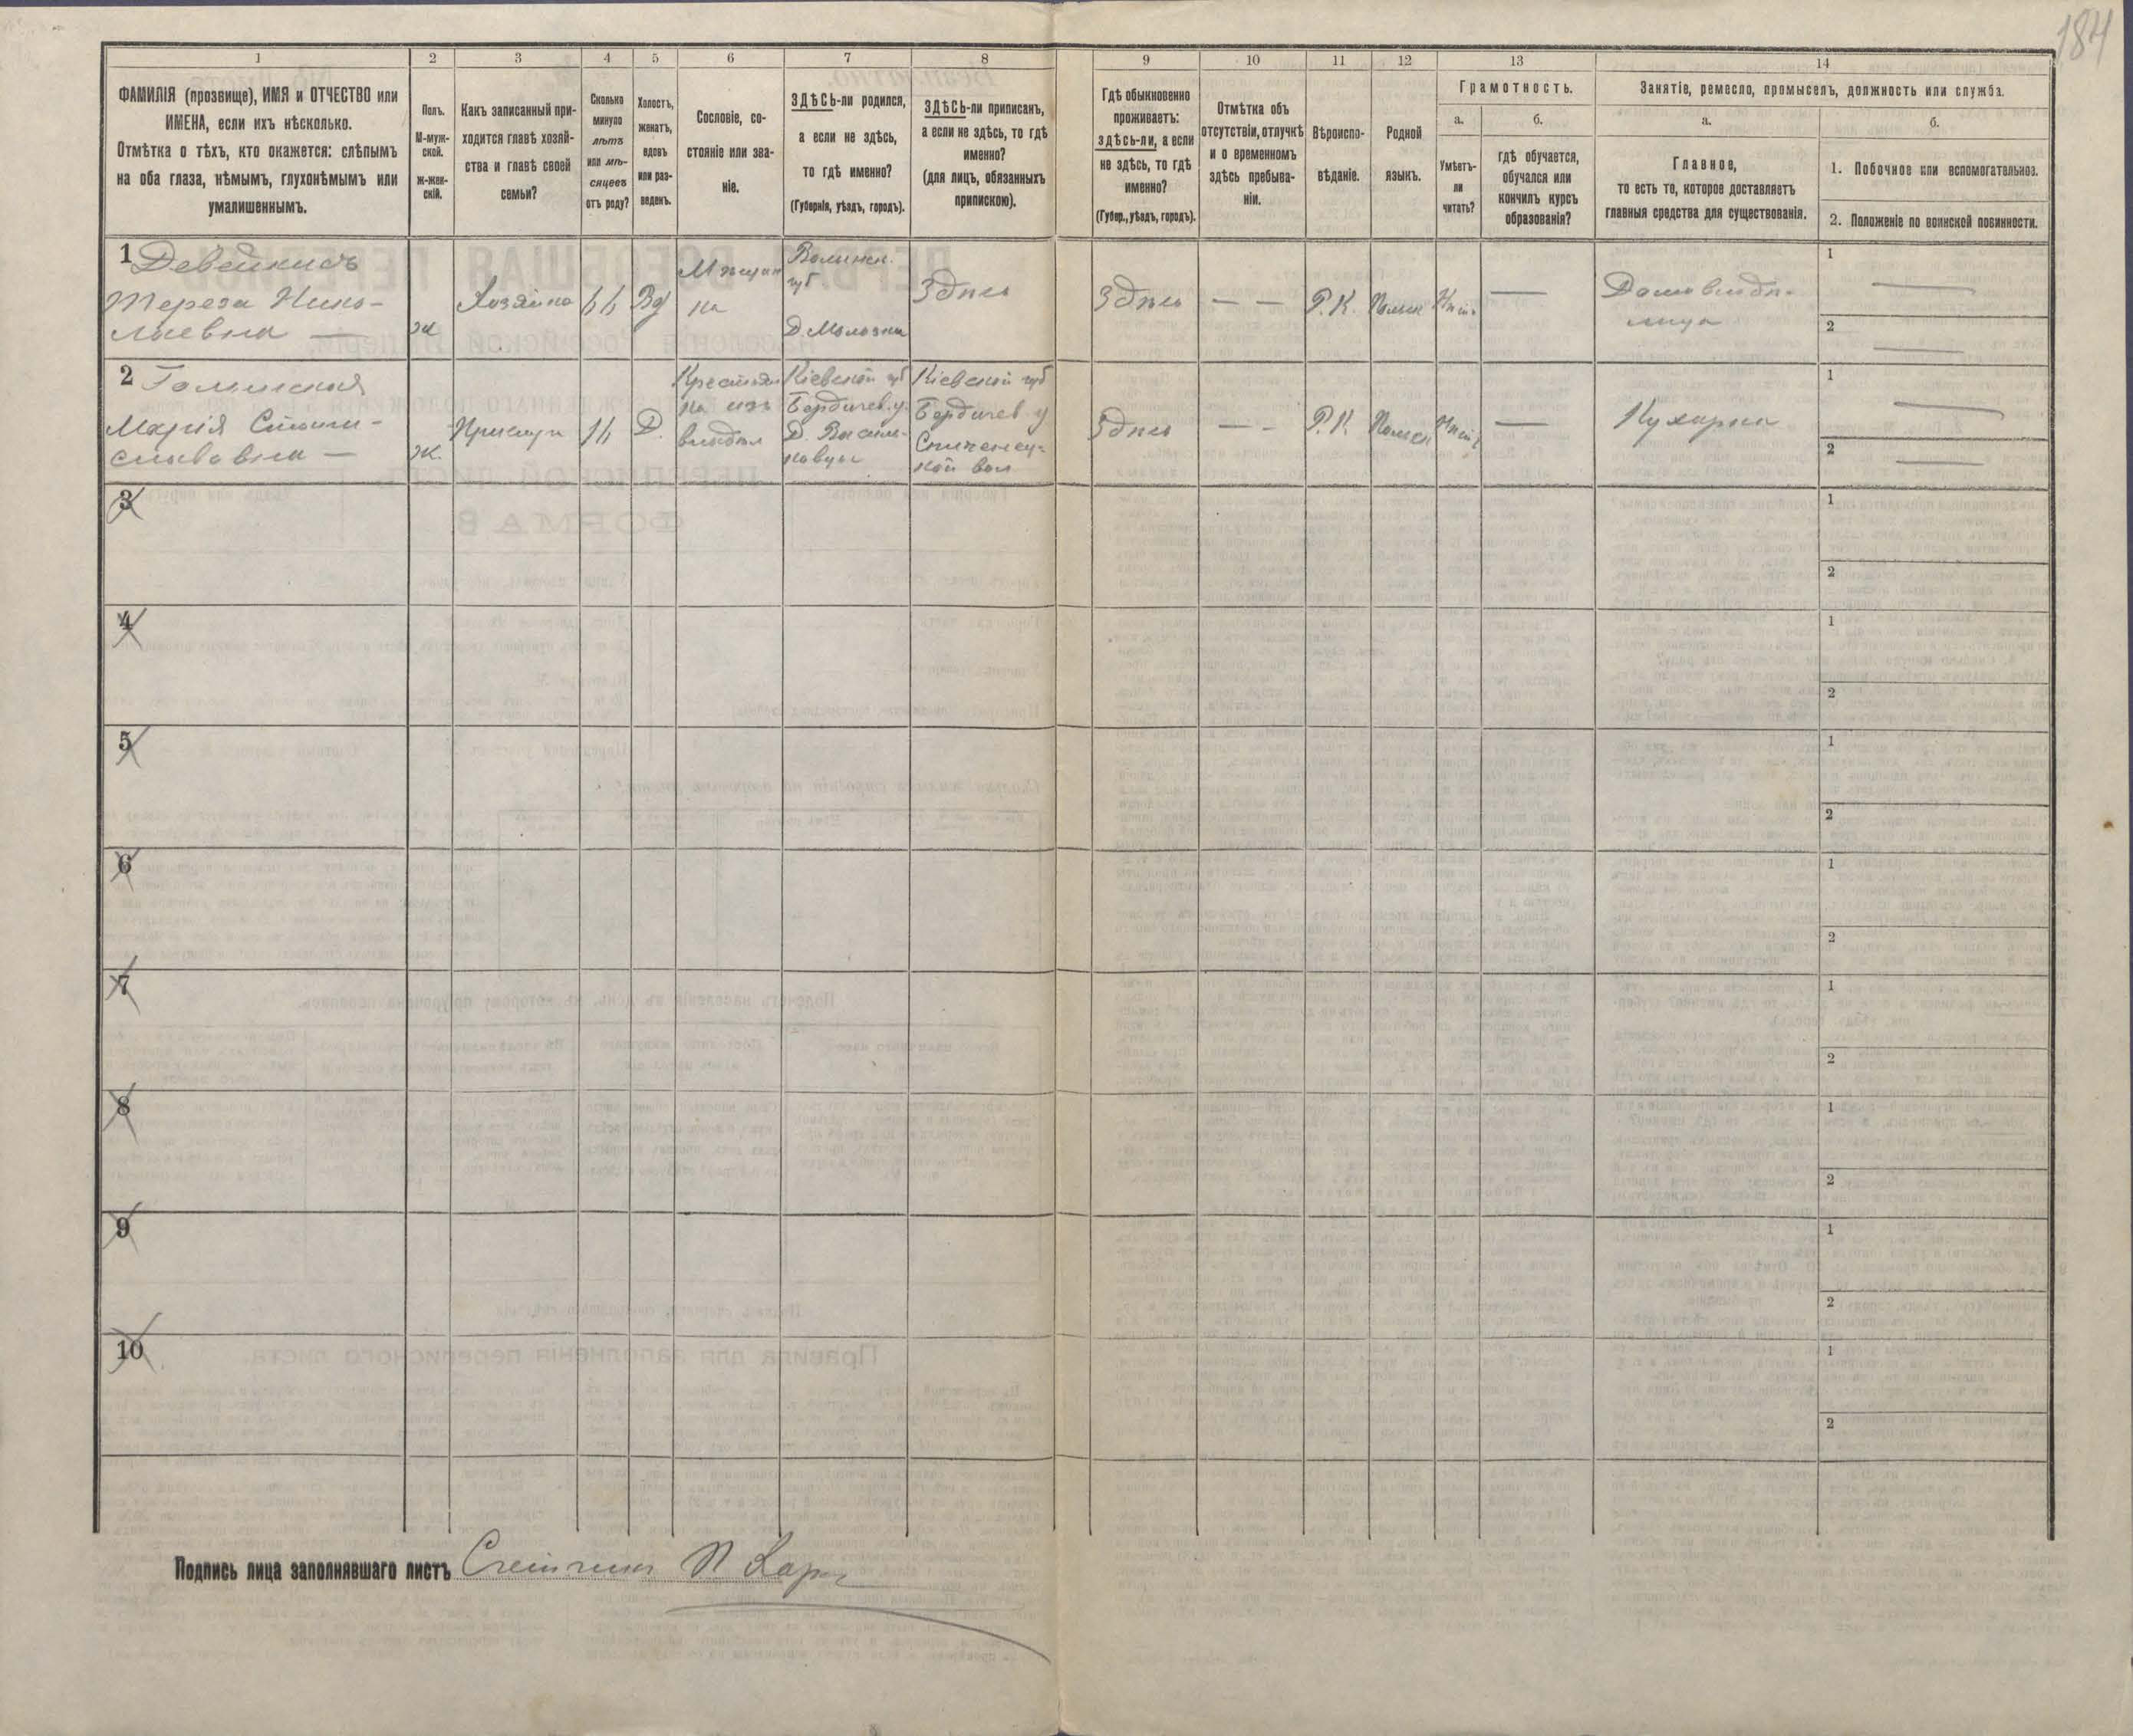 184
1
2
3
4
5
6
7
8
9
10
11
12
13
14
ФАМИЛІЯ (прозвище), ИМЯ и ОТЧЕСТВО или
ИМЕНА, если ихъ нѣсколько.
Отмѣтка о тѣхъ, кто окажется: слѣпымъ
на оба глаза, нѣмымъ, глухонѣмымъ или
умалишеннымъ.
Полъ.
М-муж-
ской.
Ж-жен-
скій.
Какъ записанный при-
ходится главѣ хозяй-
ства и главѣ своей
семьи?
Сколько
минуло
лѣтъ
или мѣ-
сяцевъ
отъ роду?
Холостъ,
женатъ,
вдовъ
или раз-
веденъ.
Сословіе, со-
стояніе или зва-
ніе.
ЗДѢСЬ-ли родился,
а если не здѣсь,
то гдѣ именно?
(Губернія, уѣздъ, городъ).
ЗДѢСЬ-ли приписанъ,
а если не здѣсь, то гдѣ
именно?
(для лицъ, обязанныхъ
припискою).
Гдѣ обыкновенно
проживаетъ:
здѣсь-ли, а если
не здѣсь, то гдѣ
именно?
(Губер., уѣздъ, городъ).
Отмѣтка объ
отсутствіи, отлучкѣ
и о временномъ
здѣсь пребыва-
ніи.
Вѣроиспо-
вѣданіе.
Родной
языкъ.
Грамотность.
а.
Умѣетъ-
ли
читать?
б.
гдѣ обучается,
обучался или
кончилъ курсъ
образованія?
Занятіе, ремесло, промыселъ, должность или служба.
а.
Главное,
то есть то, которое доставляетъ
главныя средства для существованія.
б.
1. Побочное или вспомогательное.
2. Положеніе по воинской повинности.
1
Девейкисъ
Тереза Нико-
лаевна —
ж
Хозяйка
66
Вд
Мѣщан
ка
Волынск.
губ
Здѣсь
Здѣсь
— —
Р. К.
Польск
Нѣтъ
—
Домовладѣ-
лица
1
—
2
—
2
Марія Стани-
славовна —
ж.
Прислуга
16
Д.
Крестьян
ка изъ
Кіевской губ
Бердичев. у.
Д. Василь-
ковцы
Кіевской губ
Бердичев у
кой вол
Здѣсь
— -
Р. К.
Польск
Нѣтъ
—
Кухарка
1
—
2
—
3
1
2
4
1
2
5
1
2
6
1
2
7
1
2
8
1
2
9
1
2
10
1
2
Подпись лица заполнявшаго листъ Счетчикъ П